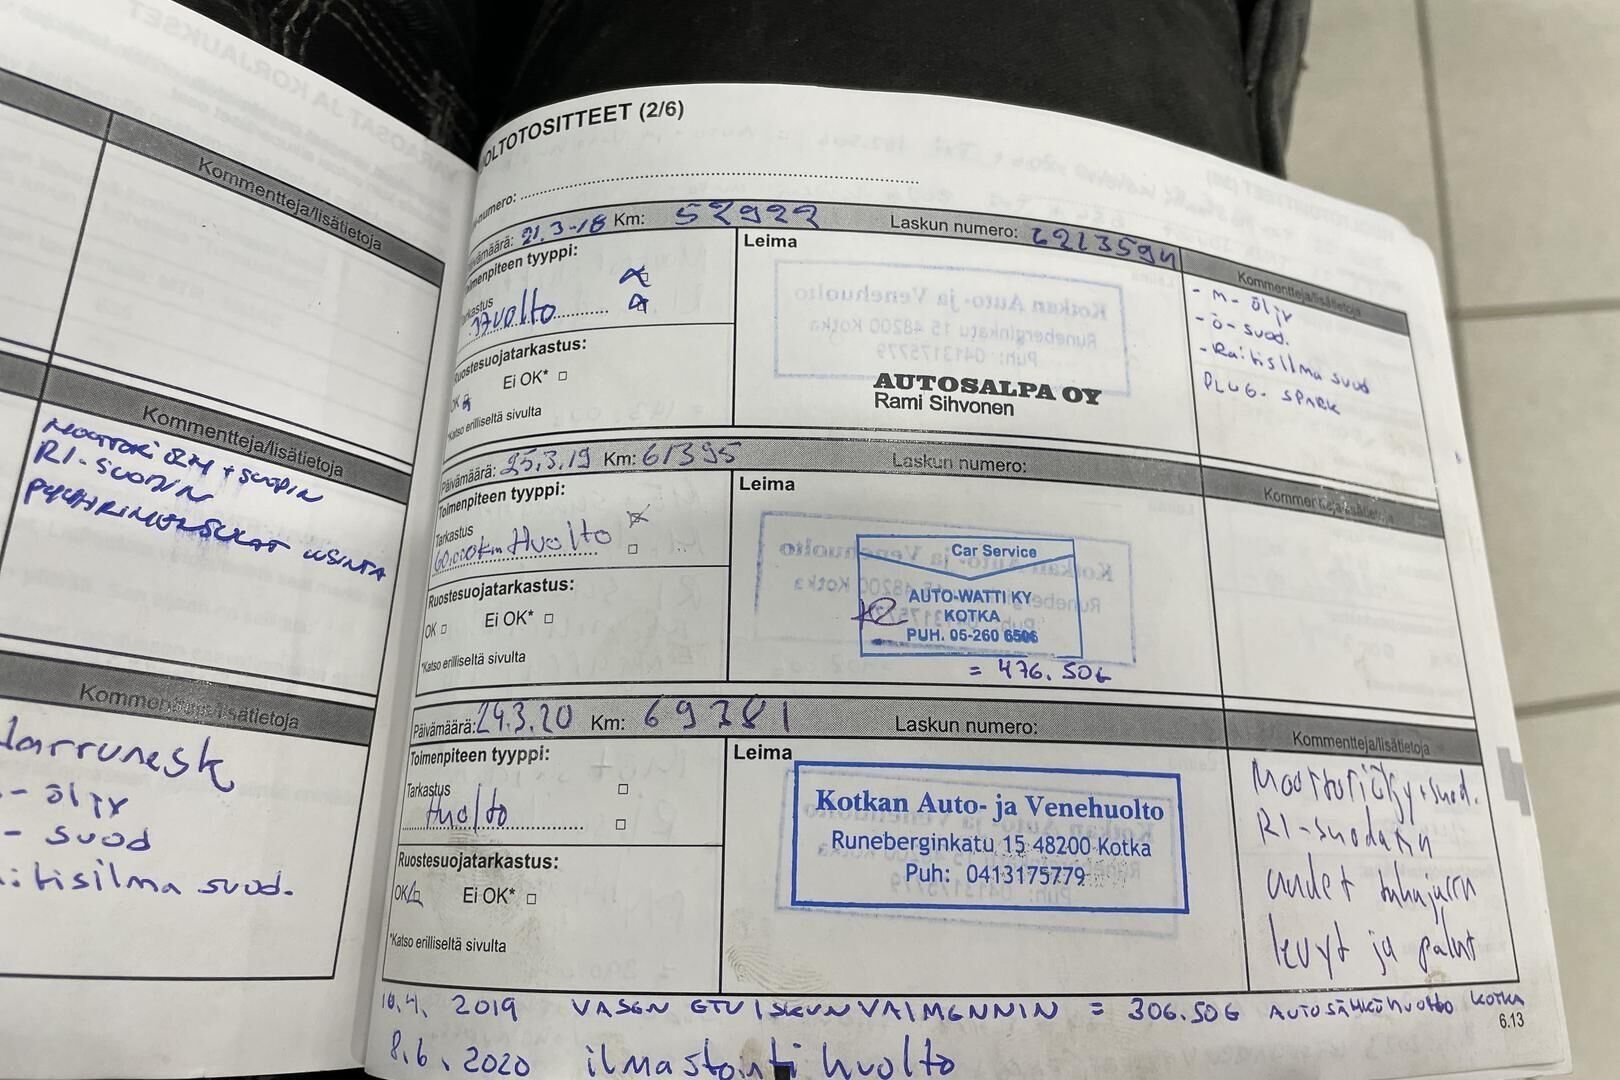 Kommentteja/lisätietoja
Kommentteja/lisätietoja
MOOTTORIÖLJY + SUODIN
RI-SUODIN
PYYHKIMENSULAT UUSINTA
Kommentteja/lisätietoja
Jarrunesk
- öljy
- suod
itisilma suod.
OLTOTOSITTEET (2/6)
numero:
Päivämäärä: 21.3-18 Km: 52922 Laskun numero: 6213594
Toimenpiteen tyyppi:
Tarkastus
Huolto
Ruostesuojatarkastus:
OK Ei OK*
*Katso erilliseltä sivulta
Leima
AUTOSALPA OY
Rami Sihvonen
Kommentteja/lisätietoja
- M- öljy
- ö- suod.
- Raitisilma suod
PLUG. SPARK
Päivämäärä: 25.3.19 Km: 61395 Laskun numero:
Toimenpiteen tyyppi:
Tarkastus
60.000km Huolto
Ruostesuojatarkastus:
OK Ei OK*
*Katso erilliseltä sivulta
Leima
Car Service
AUTO-WATTI KY
KOTKA
PUH. 05-260 6506
= 476.50€
Kommentteja/lisätietoja
Päivämäärä: 24.3.20 Km: 69381 Laskun numero:
Toimenpiteen tyyppi:
Tarkastus
Huolto
Ruostesuojatarkastus:
OK Ei OK*
*Katso erilliseltä sivulta
Leima
Kotkan Auto- ja Venehuolto
Runeberginkatu 15 48200 Kotka
Puh: 0413175779
Kommentteja/lisätietoja
Moottoriöljy+suod.
RI-suodatin
uudet takajarru
levyt ja palat
10.4. 2019 VASEN ETUISKUNVAIMENNIN = 306.50€ AUTOSÄHKÖHUOLTO KOTKA
6.13
8.6. 2020 ilmastointi huolto